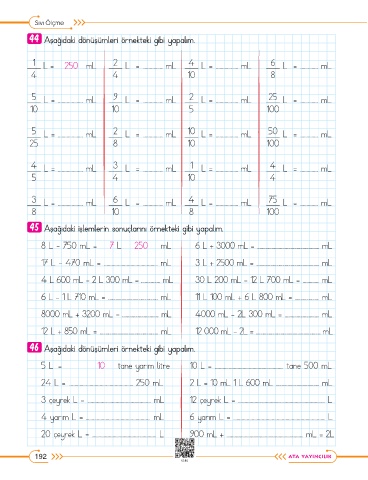 Sıvı Ölçme
44 Aşağıdaki dönüşümleri örnekteki gibi yapalım.
1/4 L = 250 mL 2/4 L = ......... mL 4/10 L = ......... mL 6/8 L = ......... mL
5/10 L = ......... mL 9/10 L = ......... mL 2/5 L = ......... mL 25/100 L = ......... mL
5/25 L = ......... mL 2/8 L = ......... mL 10/10 L = ......... mL 50/100 L = ......... mL
4/5 L = ......... mL 3/4 L = ......... mL 1/10 L = ......... mL 4/4 L = ......... mL
3/8 L = ......... mL 6/10 L = ......... mL 4/8 L = ......... mL 75/100 L = ......... mL
45 Aşağıdaki işlemlerin sonuçlarını örnekteki gibi yapalım.
8 L - 750 mL = 7 L 250 mL 6 L + 3000 mL = ......... mL
17 L - 470 mL = ......... mL 3 L + 2500 mL = ......... mL
4 L 600 mL - 2 L 300 mL = ......... mL 30 L 200 mL - 12 L 700 mL = ......... mL
6 L - 1 L 710 mL = ......... mL 11 L 100 mL + 6 L 800 mL = ......... mL
8000 mL + 3200 mL = ......... mL 4000 mL - 2L 300 mL = ......... mL
12 L + 850 mL = ......... mL 12 000 mL - 2L = ......... mL
46 Aşağıdaki dönüşümleri örnekteki gibi yapalım.
5 L = 10 tane yarım litre 10 L = ......... tane 500 mL
24 L = ......... 250 mL 2 L = 10 mL 1 L 600 mL ......... mL
3 çeyrek L = ......... mL 12 çeyrek L = ......... L
4 yarım L = ......... mL 6 yarım L = ......... L
20 çeyrek L = ......... L 900 mL + ......... mL = 2L
192 ATA YAYINCILIK